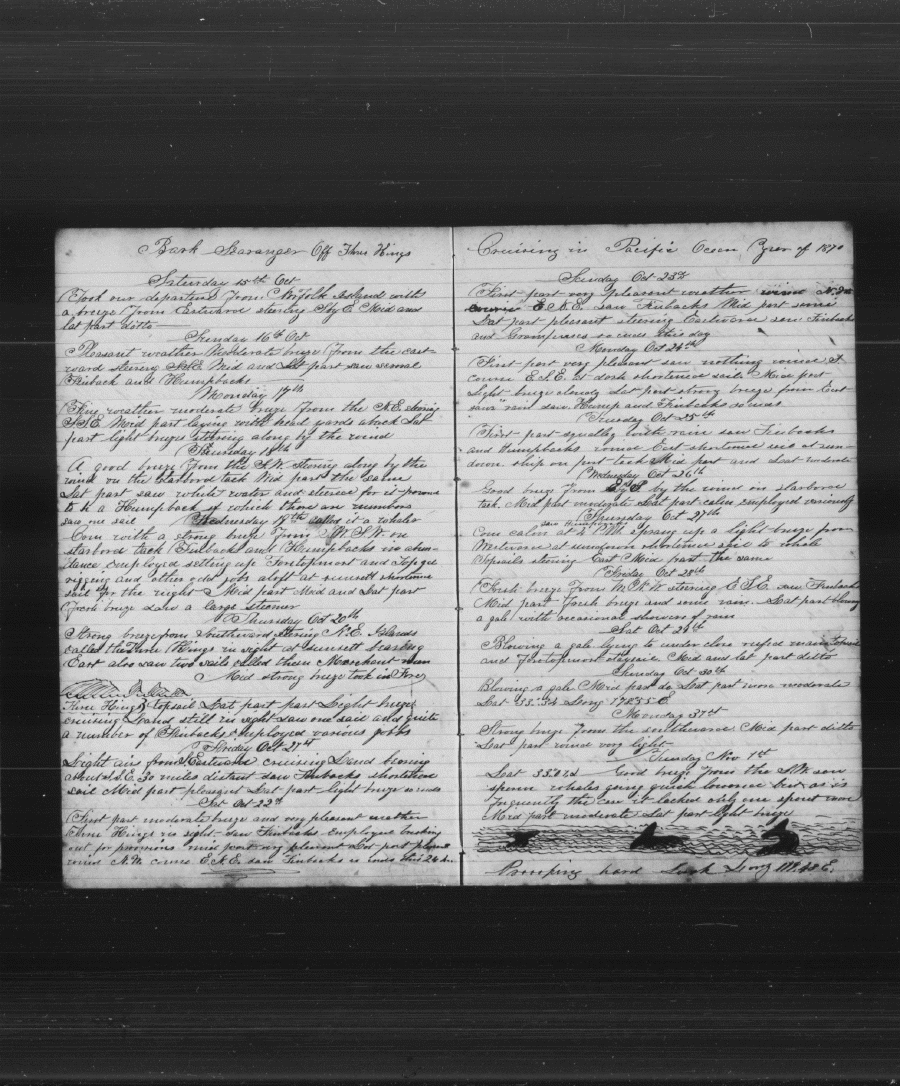 Bark Seeranger Off Three Kings
Saturday 15th Oct
Took our departure from Norfolk Island with
a breeze from Eastward stering S by E Mid and
lat part ditto
Sunday 16th Oct
Pleasant weather Moderate breze from the east-
ward stering Mid and Lat part saw several
Finback and Humpbacks
Monday 17th
Fine weather moderate breze from the N.E. stering
S.S.E. Mid part laying with head yards aback Lat
part light brezes stering along by the wind
Thuesday 18th
A good breze from the S.W. Stering along by the
wind on the starbord tack Mid part the same
Lat part saw white water and steered for it proved
to be a Humpback of which there are numbers
saw one sail Wednesday 19th called it a whaler
Com with a strong breze from W.S.W. on
starbord tack Finbacks and Humpbacks in abun-
dance employed setting up Foretopmast and Topgal
rigging and other odd jobs aloft at sunsett shortened
sail for the night Mid part Mod and Lat part
Fresh breze saw a large steamer
Thursday Oct 20th
Strong breze from Southward stering N.E. Islands
called the Three Kings in sight at sunsett bearing
East also saw two sails called them Merchant men
Mid strong breze took in Fore
Three Kings topsail Lat part part Light breze
cruising Land still in sight saw one sail and quite
a number of Finbacks employed various jobs
Friday Oct 21st
Light airs from Eastward cruising Land bearing
about S.S.E. 30 miles distant saw Finbacks shortened
sail Mid part pleasent Lat part light breze
Sat Oct 22nd
First part moderate breze and very pleasent weather
Three Kings in sight saw Finbacks Employed breaking
out for provisions mid part very pleasent Lat part pleas
wind N.W. course E.N.E. saw Finbacks so ends this 24 h.
Cruising in Pacific Ocean Year of 1870
Sunday Oct 23rd
First part very pleasent weather wind
course E.N.E. saw Finbacks Mid part same
Lat part pleasent stering Eastward saw Finbacks
and Grampuses so ends this day
Monday Oct 24th
First part very pleasent saw nothing wind
course E.S.E. at dark shortened sail Mid part
Light breze cloudy Lat part strong breze from East
saw Hump and Finbacks so ends
Tuesday Oct 25th
First part squally with rain saw Finbacks
and Humpbacks wind East shortened sail at sun-
down ship on port tack Mid part and Lat moderate
Wednesday Oct 26th
Good breze from by the wind on starbord
tack Mid part moderate Lat part calm employed variously
Thursday Oct 27th
saw Humpbacks
Com calm at 4 P.M. sprang up a light breze from
Westward at sundown shortened sail to whole
topsails stering East Mid part the same
Friday Oct 28th
Fresh breze from W.N.W. stering E.S.E. saw Finbacks
Mid part Fresh breze and some rain Lat part blowing
a gale with occasional showers of rain
Sat Oct 29th
Blowing a gale lying to under close reefed main topsail
and Foretopmast staysail Mid and lat part ditto
Sunday Oct 30th
Blowing a gale Mid part do Lat part more moderate
Lat 33.34 Long 178.55 E.
Monday 31st
Strong breze from the southward Mid part ditto
Lat part wind very light
Tuesday Nov 1st
Lat Good breze from the S.W. saw
sperm whales going quick lowered but as is
frequently the case it lacked only one spout more
Mid part moderate Lat part light breze
Pumping hard Luck Long E.